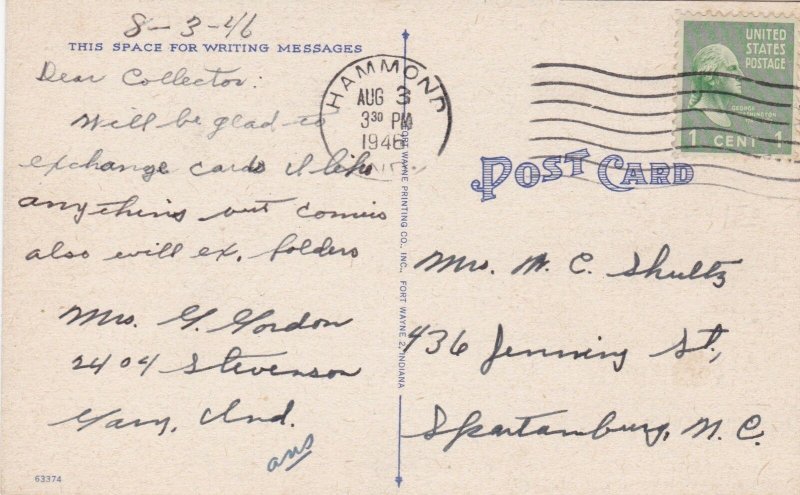 8-3-46
THIS SPACE FOR WRITING MESSAGES
Dear Collector:
Will be glad to
exchange cards I like
anything but comics
also will ex. folders
Mrs. G. Gordon
2404 Stevenson
Gary, Ind.
ans
63374
FORT WAYNE PRINTING CO., INC., FORT WAYNE 2, INDIANA
HAMMOND
AUG 3
3 30 PM
1946
IND.
UNITED
STATES
POSTAGE
GEORGE
WASHINGTON
1 CENT 1
POST CARD
Mrs. M. C. Shultz
436 Jenning St.,
Spartanburg, N. C.